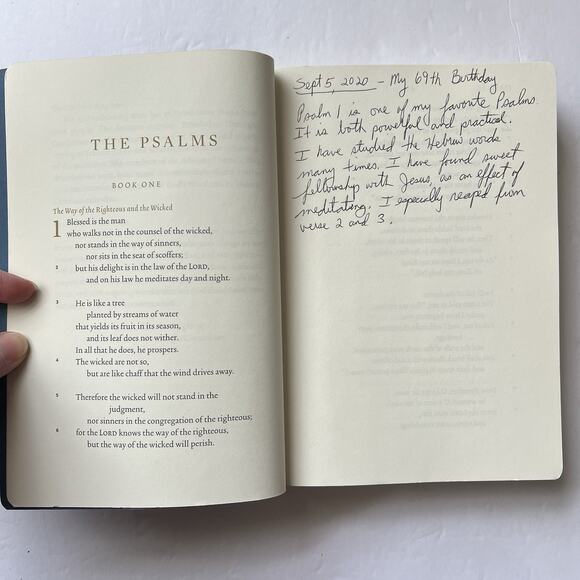 THE PSALMS
BOOK ONE
The Way of the Righteous and the Wicked
1 Blessed is the man
who walks not in the counsel of the wicked,
nor stands in the way of sinners,
nor sits in the seat of scoffers;
2 but his delight is in the law of the LORD,
and on his law he meditates day and night.
3 He is like a tree
planted by streams of water
that yields its fruit in its season,
and its leaf does not wither.
In all that he does, he prospers.
4 The wicked are not so,
but are like chaff that the wind drives away.
5 Therefore the wicked will not stand in the
judgment,
nor sinners in the congregation of the righteous;
6 for the LORD knows the way of the righteous,
but the way of the wicked will perish.
Sept 5, 2020 - My 69th Birthday
Psalm 1 is one of my favorite Psalms.
It is both powerful and practical.
I have studied the Hebrew words
many times. I have found sweet
fellowship with Jesus, as an effect of
meditating. I especially reaped from
verse 2 and 3.